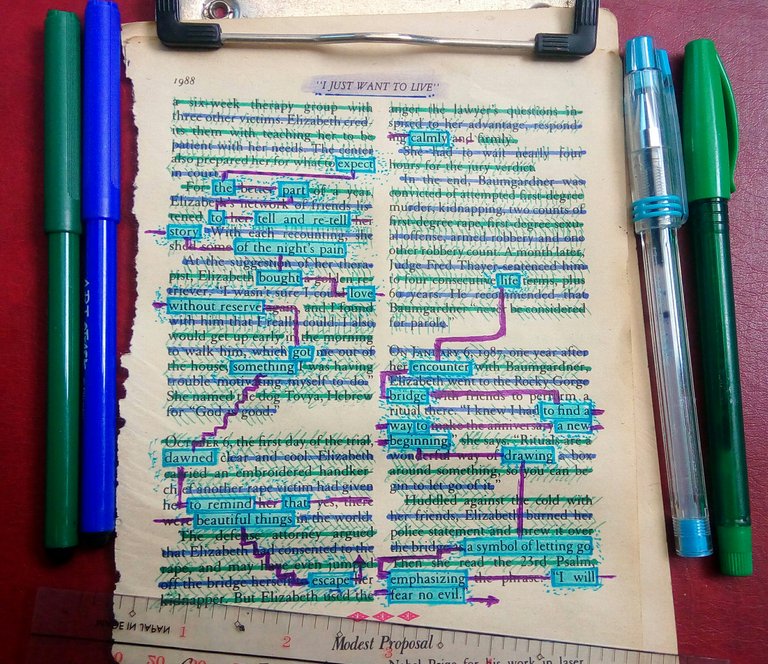 1988
"I JUST WANT TO LIVE"
a six-week therapy group with
three other victims. Elizabeth cred
its them with teaching her to be
patient with her needs. The center
also prepared her for what to expect
in court.
For the better part of a year
Elizabeth's network of friends lis
tened to her tell and re-tell her
story. With each recounting, she
shed some of the night's pain
At the suggestion of her thera
pist Elizabeth bought a golden re
triever. "I wasn't sure I could love
without reserve and I found
with him that I really could. I also
would get up early in the morning
to walk him, which got me out of
the house, something I was having
trouble motivating myself to do.
She named the dog Tovya, Hebrew
for "God is good.
OCTOBER 6, the first day of the trial,
dawned clear and cool. Elizabeth
carried an embroidered handker
chief another rape victim had given
her to remind her that yes, there
were beautiful things in the world
The defense attorney argued
that Elizabeth had consented to the
rape, and may have even jumped
off the bridge herself to escape her
kidnapper. But Elizabeth used the
anger the lawyer's questions in
spired to her advantage, respond
ing calmly and firmly.
She had to wait nearly four
hours for the jury verdict.
In the end, Baumgardner was
convicted of attempted first-degree
murder, kidnapping, two counts of
first-degree rape, first-degree sexu
al offense, armed robbery and one
other robbery count. A month later,
Judge Fred Thieme sentenced him
to four consecutive life terms, plus
60 years. He recommended that
Baumgardner never be considered
for parole.
ON JANUARY 6, 1987, one year after
her encounter with Baumgardner,
Elizabeth went to the Rocky Gorge
bridge with friends to perform a
ritual there. "I knew I had to find a
way to make the anniversary a new
beginning," she says. "Rituals are a
wonderful way of drawing a box
around something, so you can be
gin to let go of it."
Huddled against the cold with
her friends, Elizabeth burned her
police statement and threw it over
the bridge as a symbol of letting go.
Then she read the 23rd Psalm
emphasizing the phrase "I will
fear no evil.
MADE IN JAPAN
1
2
3
Modest Proposal
10
20
Nobel Prize for his work in laser